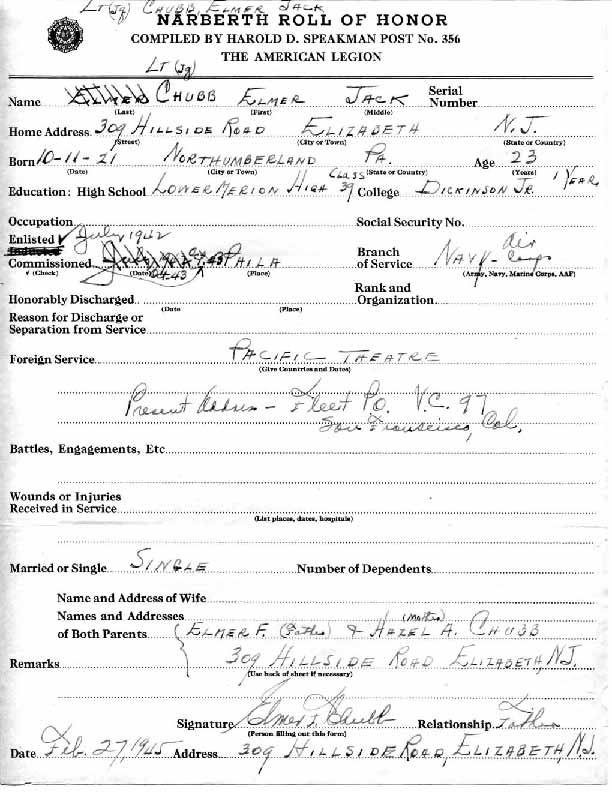 Lt (Jg) Chubb, Elmer Jack
NARBERTH ROLL OF HONOR
COMPILED BY HAROLD D. SPEAKMAN POST No. 356
THE AMERICAN LEGION
Lt (Jg)
Name Chubb Elmer Jack Serial Number
(Last) (First) (Middle)
Home Address 309 Hillside Road Elizabeth N.J.
(Street) (City or Town) (State or Country)
Born 10-11-21 Northumberland Pa. Age 23
(Date) (City or Town) (State or Country) (Years)
Education: High School Lower Merion High Class 39 College Dickinson Jr. 1 Year
Occupation Social Security No.
Enlisted ✓ July 1942
Inducted
Commissioned Phila Branch of Service Navy - Air Corps
(Check) (Date) (Place) (Army, Navy, Marine Corps, AAF)
Honorably Discharged Rank and Organization
(Date (Place)
Reason for Discharge or
Separation from Service
Foreign Service Pacific Theatre
(Give Countries and Dates)
Present Address - Fleet Po. V.C. 97
San Francisco, Cal.
Battles, Engagements, Etc
Wounds or Injuries
Received in Service
(List places, dates, hospitals)
Married or Single Single Number of Dependents
Name and Address of Wife
Names and Addresses
of Both Parents Elmer F. (Father) & Hazel A. (Mother) Chubb
Remarks 309 Hillside Road Elizabeth, N.J.
(Use back of sheet if necessary)
Signature Elmer F Chubb Relationship Father
(Person filling out this form)
Date Feb. 27, 1945 Address 309 Hillside Road, Elizabeth, N.J.